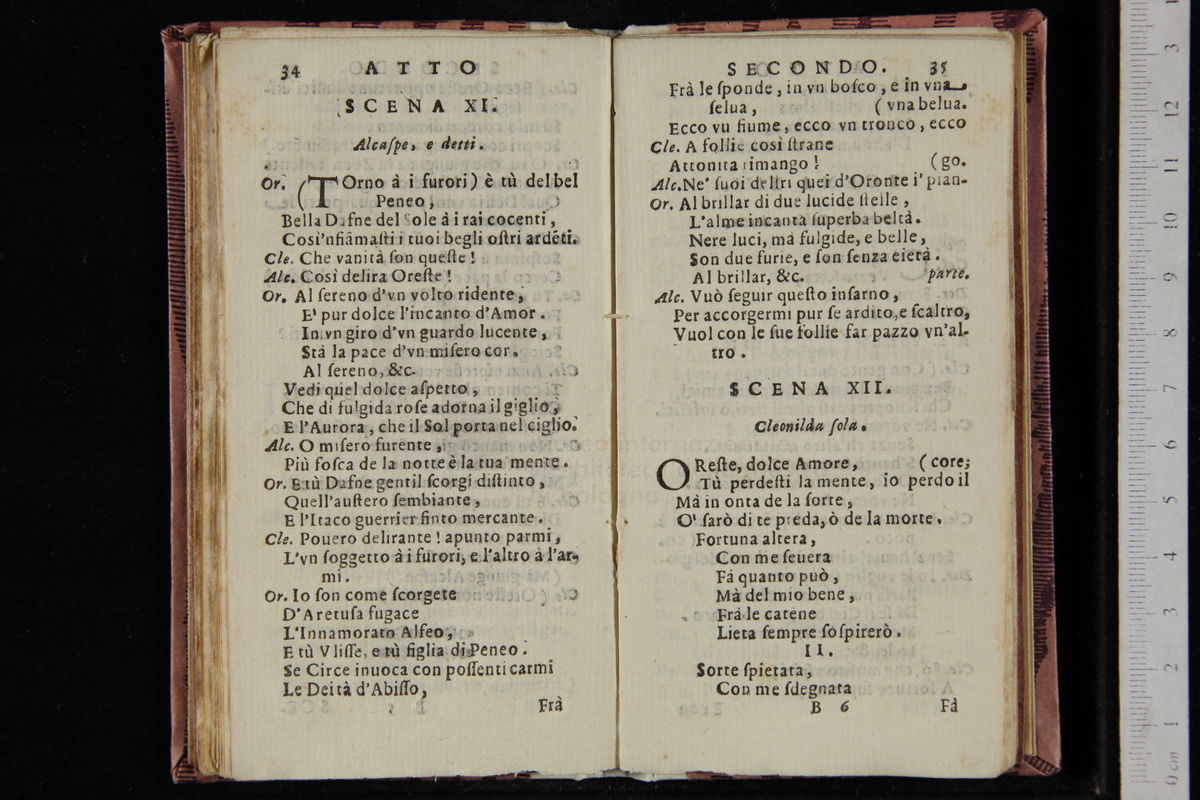 34 ATTO
SCENA XI.
Alcaſpe, e detti.
Or. (TOrno à i furori) è tù del bel
Peneo,
Bella Dafne del Sole à i rai cocenti,
Così'nfiãmaſti i tuoi begli oſtri ardẽti.
Cle. Che vanità ſon queſte!
Alc. Così delira Oreſte!
Or. Al ſereno d'vn volto ridente,
E' pur dolce l'incanto d'Amor.
In vn giro d'vn guardo lucente,
Stà la pace d'vn miſero cor.
Al ſereno, &c.
Vedi quel dolce aſpetto,
Che di fulgida roſe adorna il giglio,
E l'Aurora, che il Sol porta nel ciglio.
Alc. O miſero furente,
Più foſca de la notte è la tua mente.
Or. E tù Dafne gentil ſcorgi diſtinto,
Quell'auſtero ſembiante,
E l'Itaco guerrier finto mercante.
Cle. Pouero delirante! apunto parmi,
L'vn ſoggetto à i furori, e l'altro à l'ar-
mi.
Or. Io ſon come ſcorgete
D'Aretuſa fugace
L'Innamorato Alfeo,
E tù Vliſſe, e tù figlia di Peneo.
Se Circe inuoca con poſſenti carmi
Le Deità d'Abiſſo,
Frà
SECONDO. 35
Frà le ſponde, in vn boſco, e in vna
ſelua, (vna belua.
Ecco vu fiume, ecco vn tronco, ecco
Cle. A follie così ſtrane
Attonita rimango! (go.
Alc. Ne' ſuoi deliri quei d'Oronte i' pian-
Or. Al brillar di due lucide ſtelle,
L'alme incanta ſuperba beltà.
Nere luci, mà fulgide, e belle,
Son due furie, e ſon ſenza eietà.
Al brillar, &c. parte.
Alc. Vuò ſeguir queſto inſarno,
Per accorgermi pur ſe ardito, e ſcaltro,
Vuol con le ſue follie far pazzo vn'al-
tro.
SCENA XII.
Cleonilda ſola.
OReſte, dolce Amore, (core;
Tù perdeſti la mente, io perdo il
Mà in onta de la ſorte,
O' ſarò di te preda, ò de la morte.
Fortuna altera,
Con me ſeuera
Fà quanto può,
Mà del mio bene,
Frà le catene
Lieta ſempre ſoſpirerò.
II.
Sorte ſpietata,
Con me ſdegnata
B 6 Fà